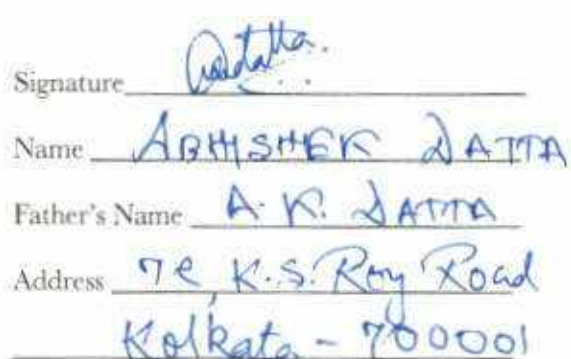 Signature Adatta.
Name ABHISHEK DATTA
Father's Name A. K. DATTA
Address 7e, K.S. Roy Road
Kolkata - 700001